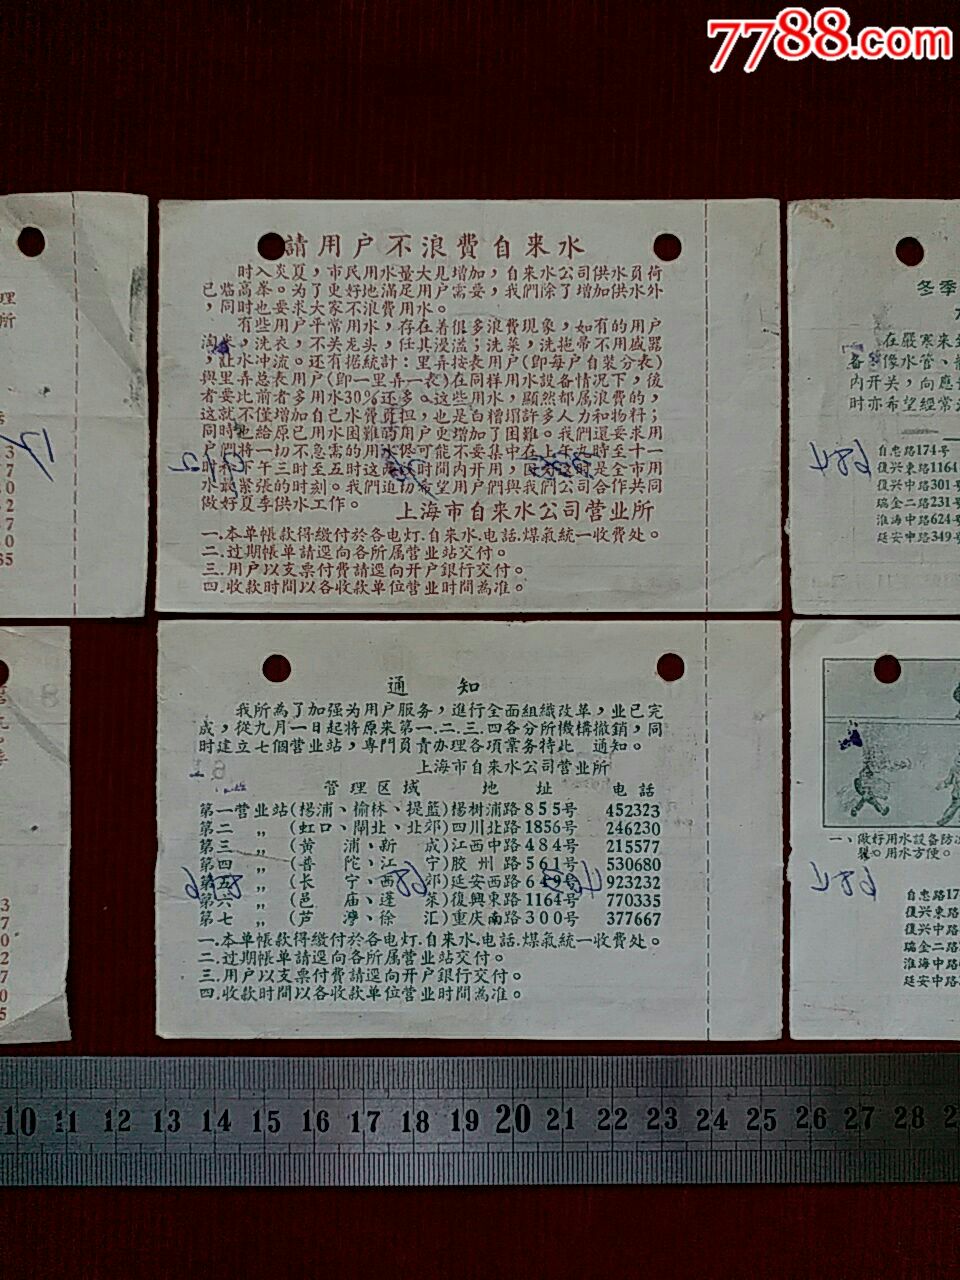 7788.com
理
所
3
7
0
2
7
0
65
請用户不浪費自来水
时入炎夏，市民用水量大見增加，自来水公司供水負荷
已临高条。为了更好地滿足用户需要，我們除了增加供水外
，同时也要求大家不浪費用水。
有些用户平常用水，存在着很多浪費現象，如有的用户
淘米，洗衣，不关龙头，任其漫溢；洗菜，洗拖帶不用盛器
，讓水冲流。还有据統計：里弄按表用户(卽每户自装分表)
與里弄总表用户(卽一里弄一表)在同样用水設备情况下，後
者要比前者多用水30%还多。这些用水，顯然都属浪費的，
这就不僅增加自己水費負担，也是白榙塌許多人力和物料；
同时也給原已用水困難的用户更增加了困难。我們還要求用
户們将一切不急需的用水儘可能不要集中在上午九时至十一
时和下午三时至五时这兩段时間内开用，因为这时是全市用
水最紧張的时刻。我們迫切希望用户們與我們公司合作共同
做好夏季供水工作。
上海市自来水公司营业所
一.本单帳款得繳付於各电灯.自来水.电話.煤氣統一收費处。
二.过期帳单請逕向各所属营业站交付。
三.用户以支票付費請逕向开户銀行交付。
四.收款时間以各收款单位营业时間為准。
冬季
在嚴寒来
备 像水管、
内开关，向應
时亦希望經常
自忠路174号
復兴東路1164
復兴中路301号
瑞金二路231号
淮海中路624号
延安中路349号
684
通 知
我所為了加强为用户服务，進行全面組織改革，业已完
成，從九月一日起将原来第一.二.三.四各分所機構撤銷，同
时建立七個营业站，專門負責办理各項業务特此 通知。
上海市自来水公司营业所
管理区域 地 址 电 話
第一营业站(楊浦、榆林、提籃)楊樹浦路855号 452323
第二 〃 (虹口、閘北、北郊)四川北路1856号 246230
第三 〃 (黄 浦、新 成)江西中路484号 215577
第四 〃 (普 陀、江 宁)胶州路561号 530680
第五 〃 (长 宁、西 郊)延安西路649号 923232
第六 〃 (邑 庙、蓬 萊)復興東路1164号 770335
第七 〃 (芦 灣、徐 汇)重庆南路300号 377667
一.本单帳款得繳付於各电灯.自来水.电話.煤氣統一收費处。
二.过期帳单請逕向各所属营业站交付。
三.用户以支票付費請逕向开户銀行交付。
四.收款时間以各收款单位营业时間為准。
3
7
0
2
7
0
5
一、做好用水設备防
用水方便。
684
自忠路17
復兴東路
復兴中路
瑞金二路
淮海中路
延安中路
10 11 12 13 14 15 16 17 18 19 20 21 22 23 24 25 26 27 28